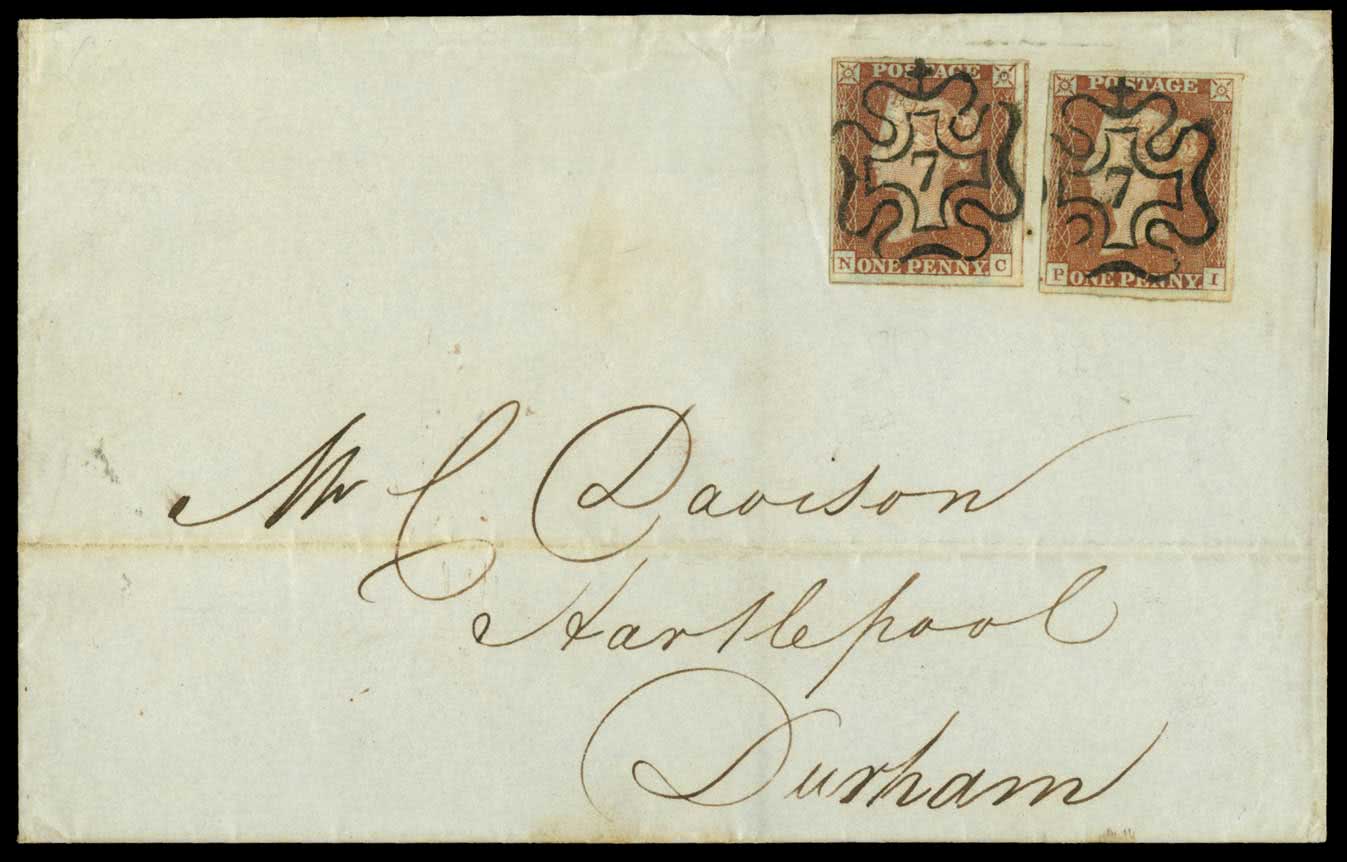 POSTAGE
7
N ONE PENNY C
POSTAGE
7
P ONE PENNY I
Mr C Davison
Hartlepool
Durham